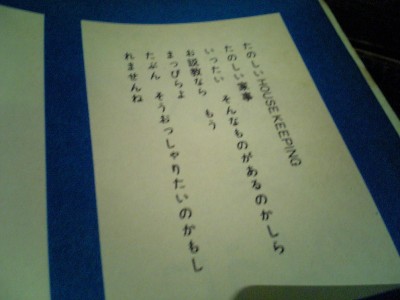 たのしい HOUSE KEEPING
たのしい家事
いったい そんなものがあるのかしら
お説教なら もう
まっぴらよ
たぶん そうおっしゃりたいのかもし
れませんね